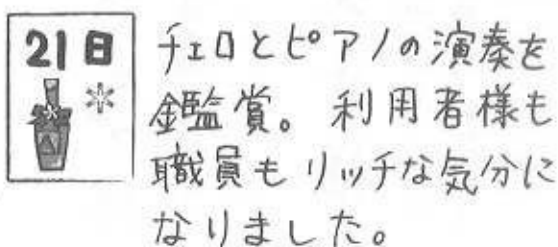 21日
チェロとピアノの演奏を
鑑賞。利用者様も
職員もリッチな気分に
なりました。